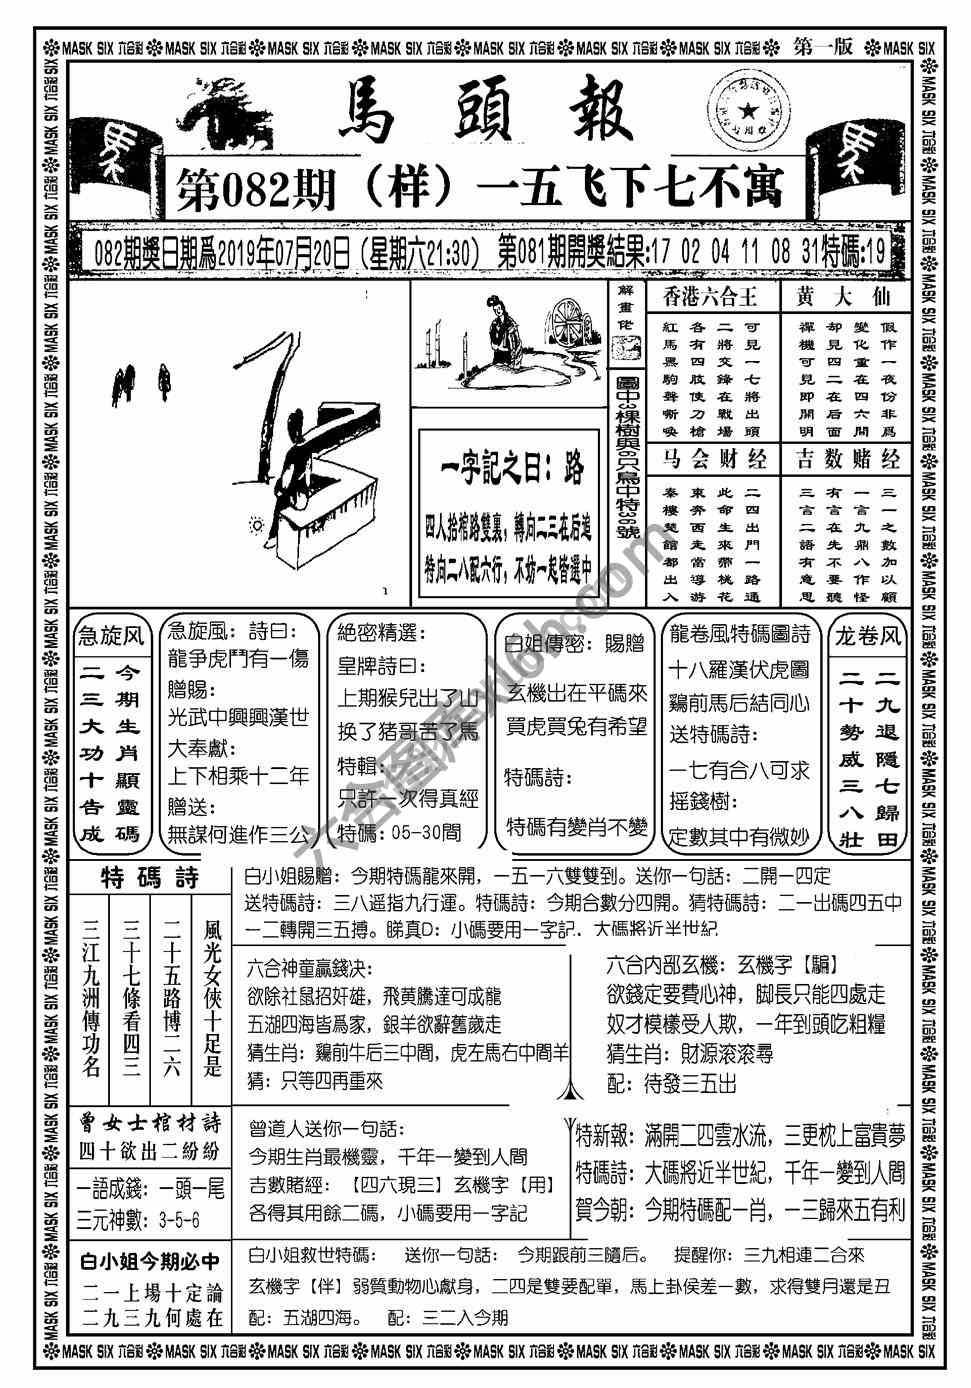 MASK SIX 六合彩 MASK SIX 六合彩 MASK SIX 六合彩 MASK SIX 六合彩 MASK SIX 六合彩 MASK SIX 六合彩 MASK SIX 六合彩 第一版 MASK SIX
馬頭報
第082期（样）一五飞下七不寓
082期獎日期爲2019年07月20日（星期六21:30） 第081期開獎結果:17 02 04 11 08 31特碼:19
解畫佬
圖中3棵樹與6只鳥中特36號
一字記之曰：路
四人拾棺路雙裏，轉向二三在后追
特向二八配六行，不妨一起皆選中
香港六合王
可見一七將出頭
二將交鋒在戰場
各有四肢使刀槍
紅馬黑駒聲嘶喚
黄大仙
假作一夜份非爲
變化重在四六開
却見四二在后面
禪機可見即開明
马会财经
二四出門一路通
此命生來帶桃花
東奔西走當導游
秦樓楚館都出入
吉数赌经
三一之數加以顧
一言九鼎八作怪
有言在先不要聽
三言二語有意思
急旋风
今期生肖顯靈碼
二三大功十告成
急旋風：詩曰：
龍争虎鬥有一傷
贈賜：
光武中興興漢世
大奉獻：
上下相乘十二年
贈送：
無謀何進作三公
絶密精選：
皇牌詩曰：
上期猴兒出了山
换了猪哥苦了馬
特輯：
只許一次得真經
特碼：05-30間
白姐傳密：賜贈
玄機出在平碼來
買虎買兔有希望
特碼詩：
特碼有變肖不變
龍卷風特碼圖詩
十八羅漢伏虎圖
鷄前馬后結同心
送特碼詩：
一七有合八可求
摇錢樹：
定數其中有微妙
龙卷风
二九退隱七歸田
二十勢威三八壯
特碼詩
風光女俠十足是
二十五路博二六
三十七條看四三
三江九洲傳功名
白小姐賜贈：今期特碼龍來開，一五一六雙雙到。送你一句話：二開一四定
送特碼詩：三八遥指九行運。特碼詩：今期合數分四開。猜特碼詩：二一出碼四五中
一二轉開三五搏。睇真D：小碼要用一字記，大碼將近半世紀
六合神童贏錢决：
欲除社鼠招奸雄，飛黄騰達可成龍
五湖四海皆爲家，銀羊欲辭舊歲走
猜生肖：鷄前牛后三中間，虎左馬右中間羊
猜：只等四再重來
六合内部玄機：玄機字【騙】
欲錢定要費心神，脚長只能四處走
奴才模樣受人欺，一年到頭吃粗糧
猜生肖：財源滚滚尋
配：待發三五出
曾女士棺材詩
四十欲出二紛紛
一語成錢：一頭一尾
三元神數：3-5-6
曾道人送你一句話：
今期生肖最機靈，千年一變到人間
吉數賭經：【四六現三】玄機字【用】
各得其用餘二碼，小碼要用一字記
特新報：滿開二四雲水流，三更枕上富貴夢
特碼詩：大碼將近半世紀，千年一變到人間
賀今朝：今期特碼配一肖，一三歸來五有利
白小姐今期必中
二一上場十定論
二九三九何處在
白小姐救世特碼： 送你一句話： 今期跟前三隨后。 提醒你：三九相連二合來
玄機字【伴】弱質動物心獻身，二四是雙要配單，馬上卦侯差一數，求得雙月還是丑
配：五湖四海。 配：三二入今期
MASK SIX 六合彩 MASK SIX 六合彩 MASK SIX 六合彩 MASK SIX 六合彩 MASK SIX 六合彩 MASK SIX 六合彩 MASK SIX 六合彩 MASK SIX 六合彩 MASK SIX